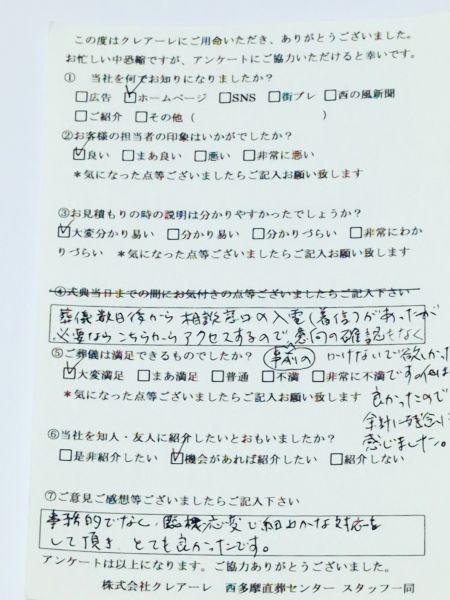 この度はクレアーレにご用命いただき、ありがとうございました。
お忙しい中恐縮ですが、アンケートにご協力いただけると幸いです。
① 当社を何でお知りになりましたか?
□広告 ☑ホームページ □SNS □街プレ □西の風新聞
□ご紹介 □その他( )
②お客様の担当者の印象はいかがでしたか?
☑良い □まあ良い □悪い □非常に悪い
*気になった点等ございましたらご記入お願い致します
③お見積もりの時の説明は分かりやすかったでしょうか?
☑大変分かり易い □分かり易い □分かりづらい □非常にわか
りづらい *気になった点等ございましたらご記入お願い致します
④式典当日までの間にお気付きの点等ございましたらご記入下さい
葬儀数日後から相談窓口の入電(着信)があったが
必要ならこちらからアクセスするので意向の確認もなく
⑤ご葬儀は満足できるものでしたか? 事前の かけないで欲しかった
☑大変満足 □まあ満足 □普通 □不満 □非常に不満 です。他は
*気になった点等ございましたらご記入お願い致します 良かったので
余計に残念に
感じました。
⑥当社を知人・友人に紹介したいとおもいましたか?
□是非紹介したい ☑機会があれば紹介したい □紹介しない
⑦ご意見ご感想等ございましたらご記入下さい
事務的でなく、臨機応変で細やかな対応を
して頂き、とても良かったです。
アンケートは以上になります。ご協力ありがとうございました。
株式会社クレアーレ 西多摩直葬センター スタッフ一同